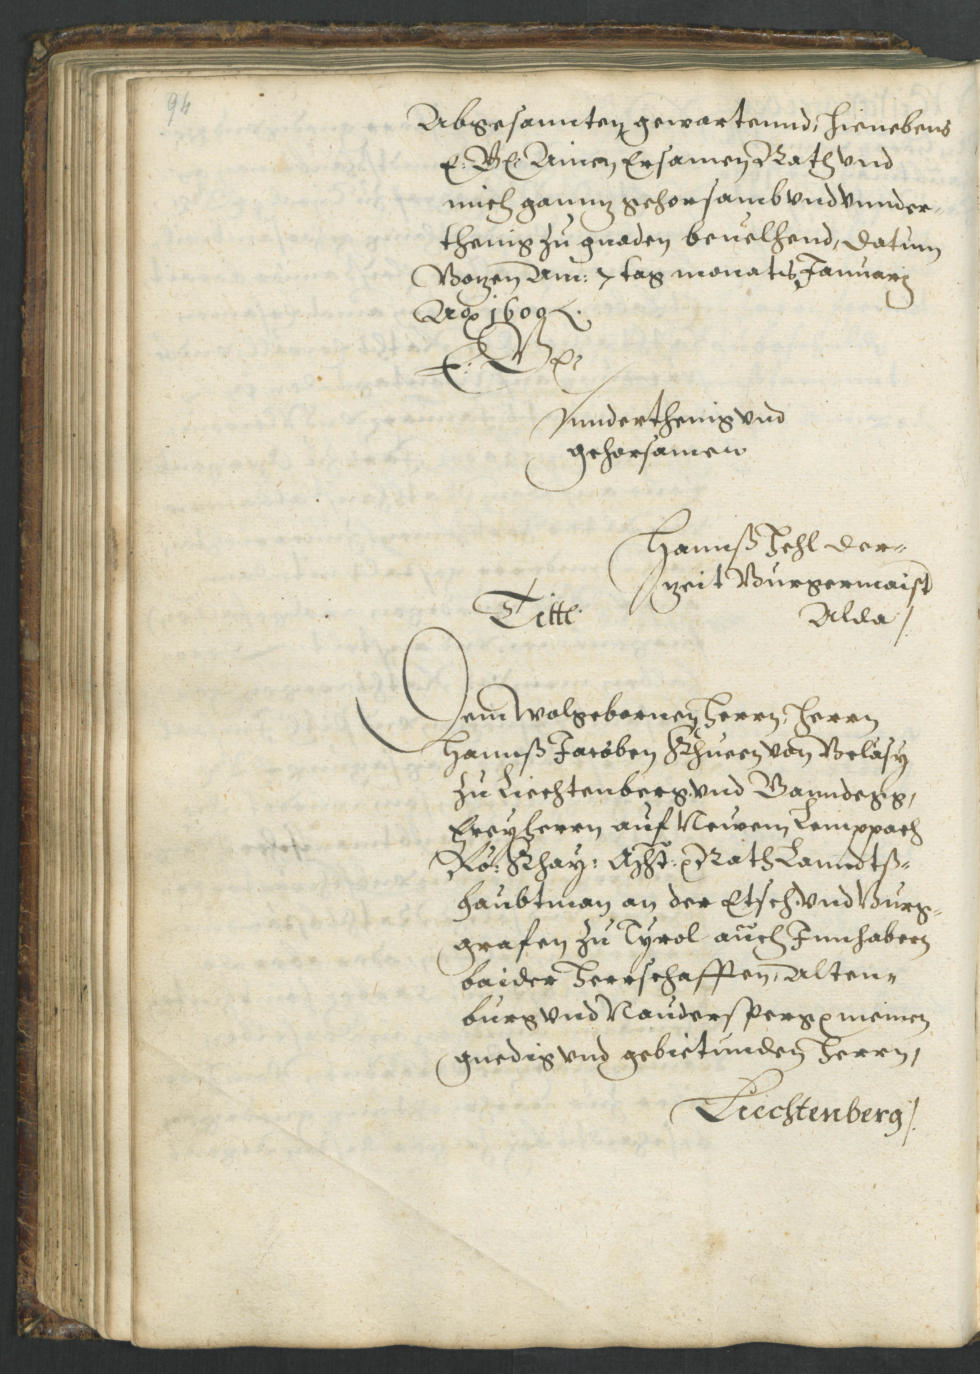 94
Abgesannten gewartennd, hienebens
E: G: Ainen Ersamen Rath vnd
mich gannz gehorsamb vnd vnnder-
thenig zu gnaden beuelhend, Datum
Bozen Am: 7 tag monats Januarij
Ao 1609.
E: G:
Vnnderthenig vnd
gehorsamen
Hannß Zehl der-
zeit Burgermaist
Alda /.
Titl:
Dem Wolgebornen Herrn, Herrn
Hannß Jacoben Khuen von Belasy
zu Liechtenberg vnd Ganndegg,
Freyherrn auf Newem Lempach
Rö: Khay: Mst: Rath Lanndtß-
haubtman an der Etsch vnd Burg-
grafen zu Tyrol auch Innhabern
baider Herrschafften, Alten-
burg vnd Naudersperg meinen
gnedig vnd gebietunden Herrn,
Liechtenberg /.